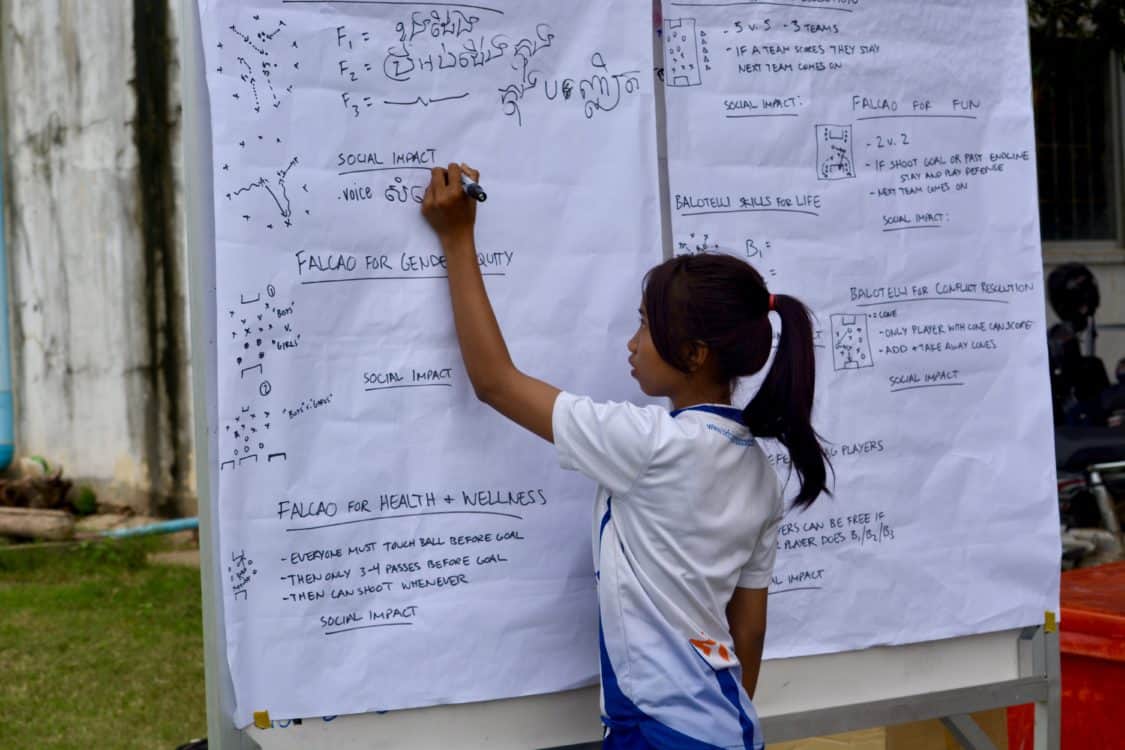 F₁ =
F₂ =
F₃ =
SOCIAL IMPACT
.voice
FALCAO FOR GENDER EQUITY
①
"BOYS"
V.
"GIRLS"
SOCIAL IMPACT
②
FALCAO FOR HEALTH + WELLNESS
- EVERYONE MUST TOUCH BALL BEFORE GOAL
- THEN ONLY 3-4 PASSES BEFORE GOAL
- THEN CAN SHOOT WHENEVER
SOCIAL IMPACT
- 5 V. 5 - 3 TEAMS
- IF A TEAM SCORES THEY STAY
NEXT TEAM COMES ON
SOCIAL IMPACT:
FALCAO FOR FUN
- 2 V. 2
- IF SHOOT GOAL OR PAST ENDLINE
STAY AND PLAY DEFENSE
- NEXT TEAM COMES ON
SOCIAL IMPACT:
BALOTELLI SKILLS FOR LIFE
B₁ =
=
BALOTELLI FOR CONFLICT RESOLUTION
= CONE
- ONLY PLAYER WITH CONE CAN SCORE
- ADD + TAKE AWAY CONES
SOCIAL IMPACT
PLAYERS
CAN BE FREE IF
PLAYER DOES B₁/B₂/B₃
IMPACT